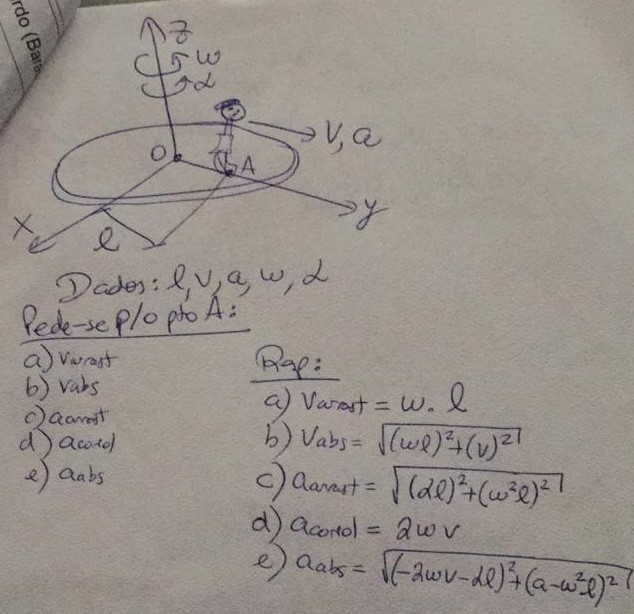 rdo (Bara
z
ω
α
V, a
O
A
x
y
l
Dados: l, v, a, ω, α
Pede-se p/ o pto A:
a) Varrast
b) Vabs
c) aarrast
d) acoriol
e) aabs
Resp:
a) Varrast = ω. l
b) Vabs = √(ωl)²+(v)²
c) aarrast = √(αl)²+(ω²l)²
d) acoriol = 2ωv
e) aabs = √(-2ωv-αl)²+(a-ω²l)²